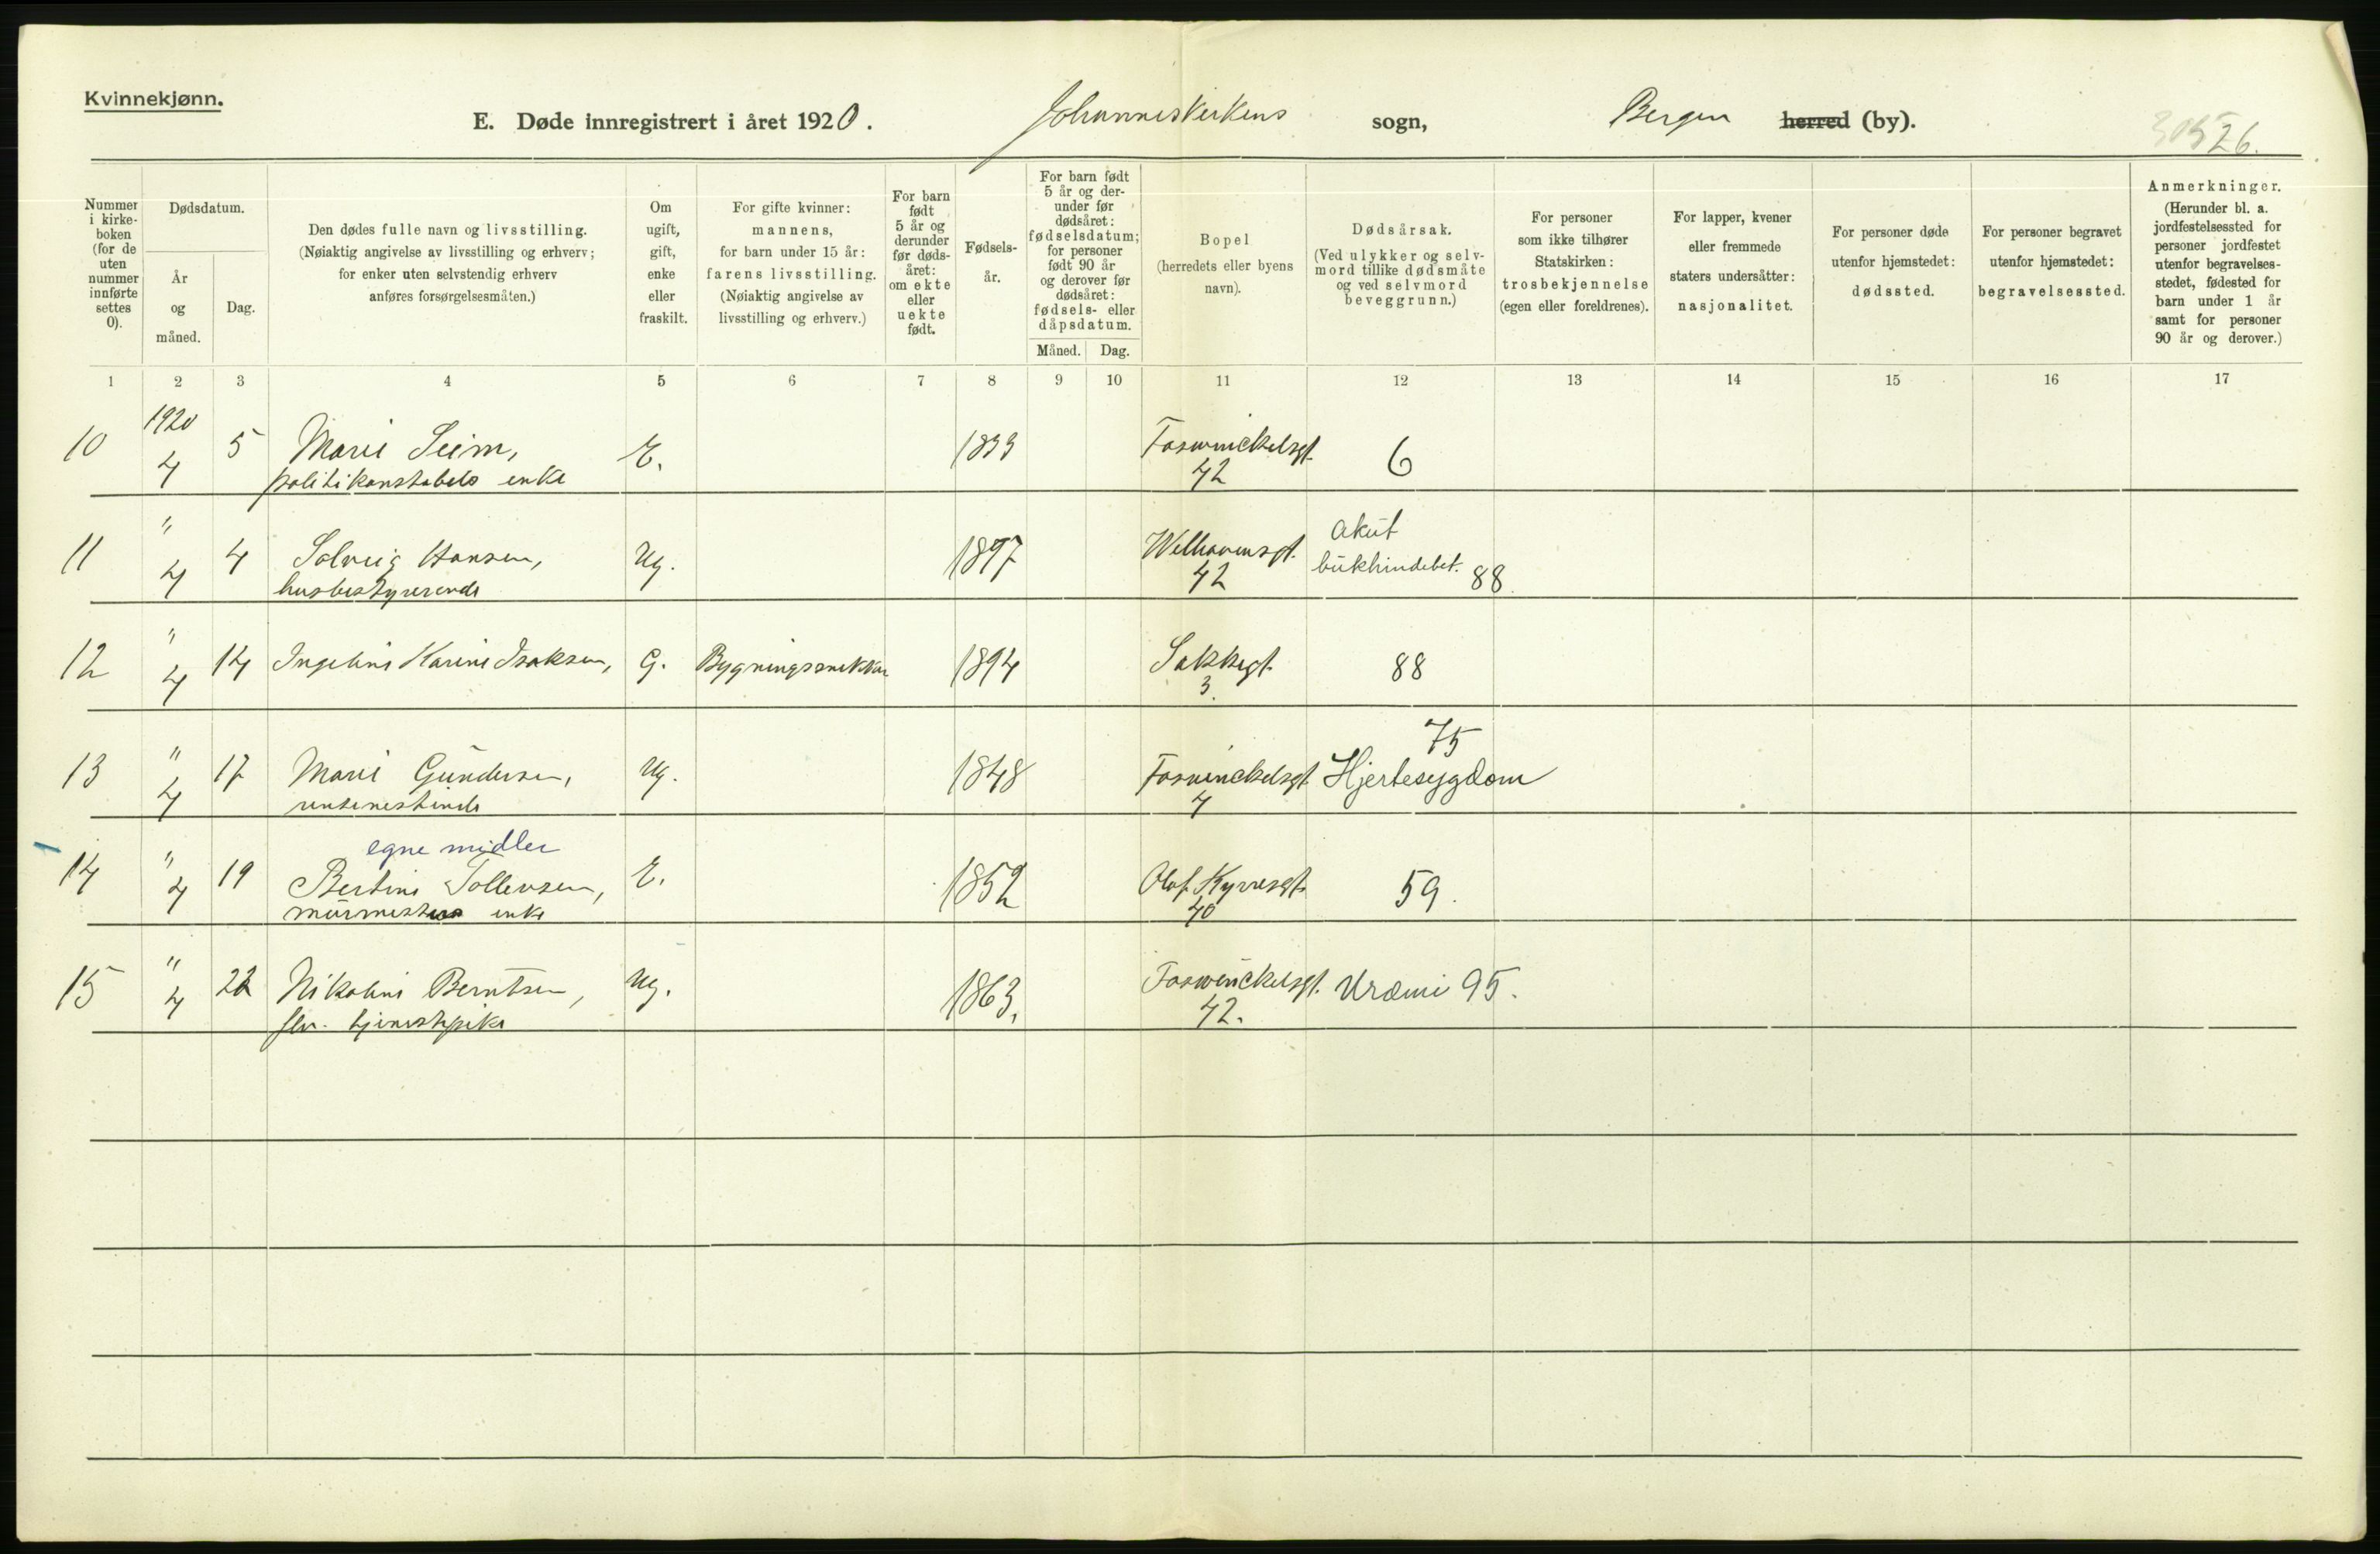 Kvinnekjønn.
E. Døde innregistrert i året 1920. Johanneskirkens sogn, Bergen herred (by). 26.
Nummer i kirke- boken (for de uten nummer innførte settes 0).
Dødsdatum.
År og måned.
Dag.
Den dødes fulle navn og livsstilling.
(Nøiaktig angivelse av livsstilling og erhverv;
for enker uten selvstendig erhverv
anføres forsørgelsesmåten.)
Om ugift, gift, enke eller fraskilt.
For gifte kvinner:
mannens,
for barn under 15 år:
farens livsstilling.
(Nøiaktig angivelse av
livsstilling og erhverv.)
For barn født 5 år og derunder før døds- året: om ekte eller uekte født.
Fødsels- år.
For barn født 5 år og der- under før dødsåret: fødselsdatum; for personer født 90 år og derover før dødsåret: fødsels- eller dåpsdatum.
Måned. Dag.
Bopel
(herredets eller byens
navn).
Dødsårsak.
(Ved ulykker og selv-
mord tillike dødsmåte
og ved selvmord
beveggrunn.)
For personer
som ikke tilhører
Statskirken:
trosbekjennelse
(egen eller foreldrenes).
For lapper, kvener
eller fremmede
staters undersåtter:
nasjonalitet.
For personer døde
utenfor hjemstedet:
dødssted.
For personer begravet
utenfor hjemstedet:
begravelsessted.
Anmerkninger.
(Herunder bl. a.
jordfestelsessted for
personer jordfestet
utenfor begravelses-
stedet, fødested for
barn under 1 år
samt for personer
90 år og derover.)
1 2 3 4 5 6 7 8 9 10 11 12 13 14 15 16 17
1920
10 4 5 Marie Seim, E. 1833 Foswinckelsgt. 6
politikonstabels enke 42
" akut
11 4 4 Solveig Hansen, Ug. 1897 Welhavensgt. bukhindebet. 88
husbestyrerende 42
"
12 4 14 Ingeline Karine Isaksen, G. Bygningssnekker 1894 Sakkegt. 88
3.
" 75
13 4 17 Marie Gundersen, Ug. 1848 Foswinckelsgt. Hjertesygdom
7
egne midler
14 " 4 19 Bertine Tollevsen, E. 1852 Olaf Kyrresgt. 59.
murmesters enke 40
"
15 4 22 Nikoline Berntsen, Ug. 1863. Foswinckelsgt. Uræmi 95.
flv. tjenestepike 42.